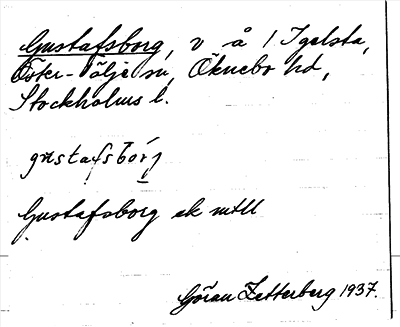 Gustafsborg, v å 1 Igelsta,
Öster-Tälje sn, Öknebo hd,
Stockholms l.
gustafsbórj
Gustafsborg ek mtll
Göran Zetterberg 1937.